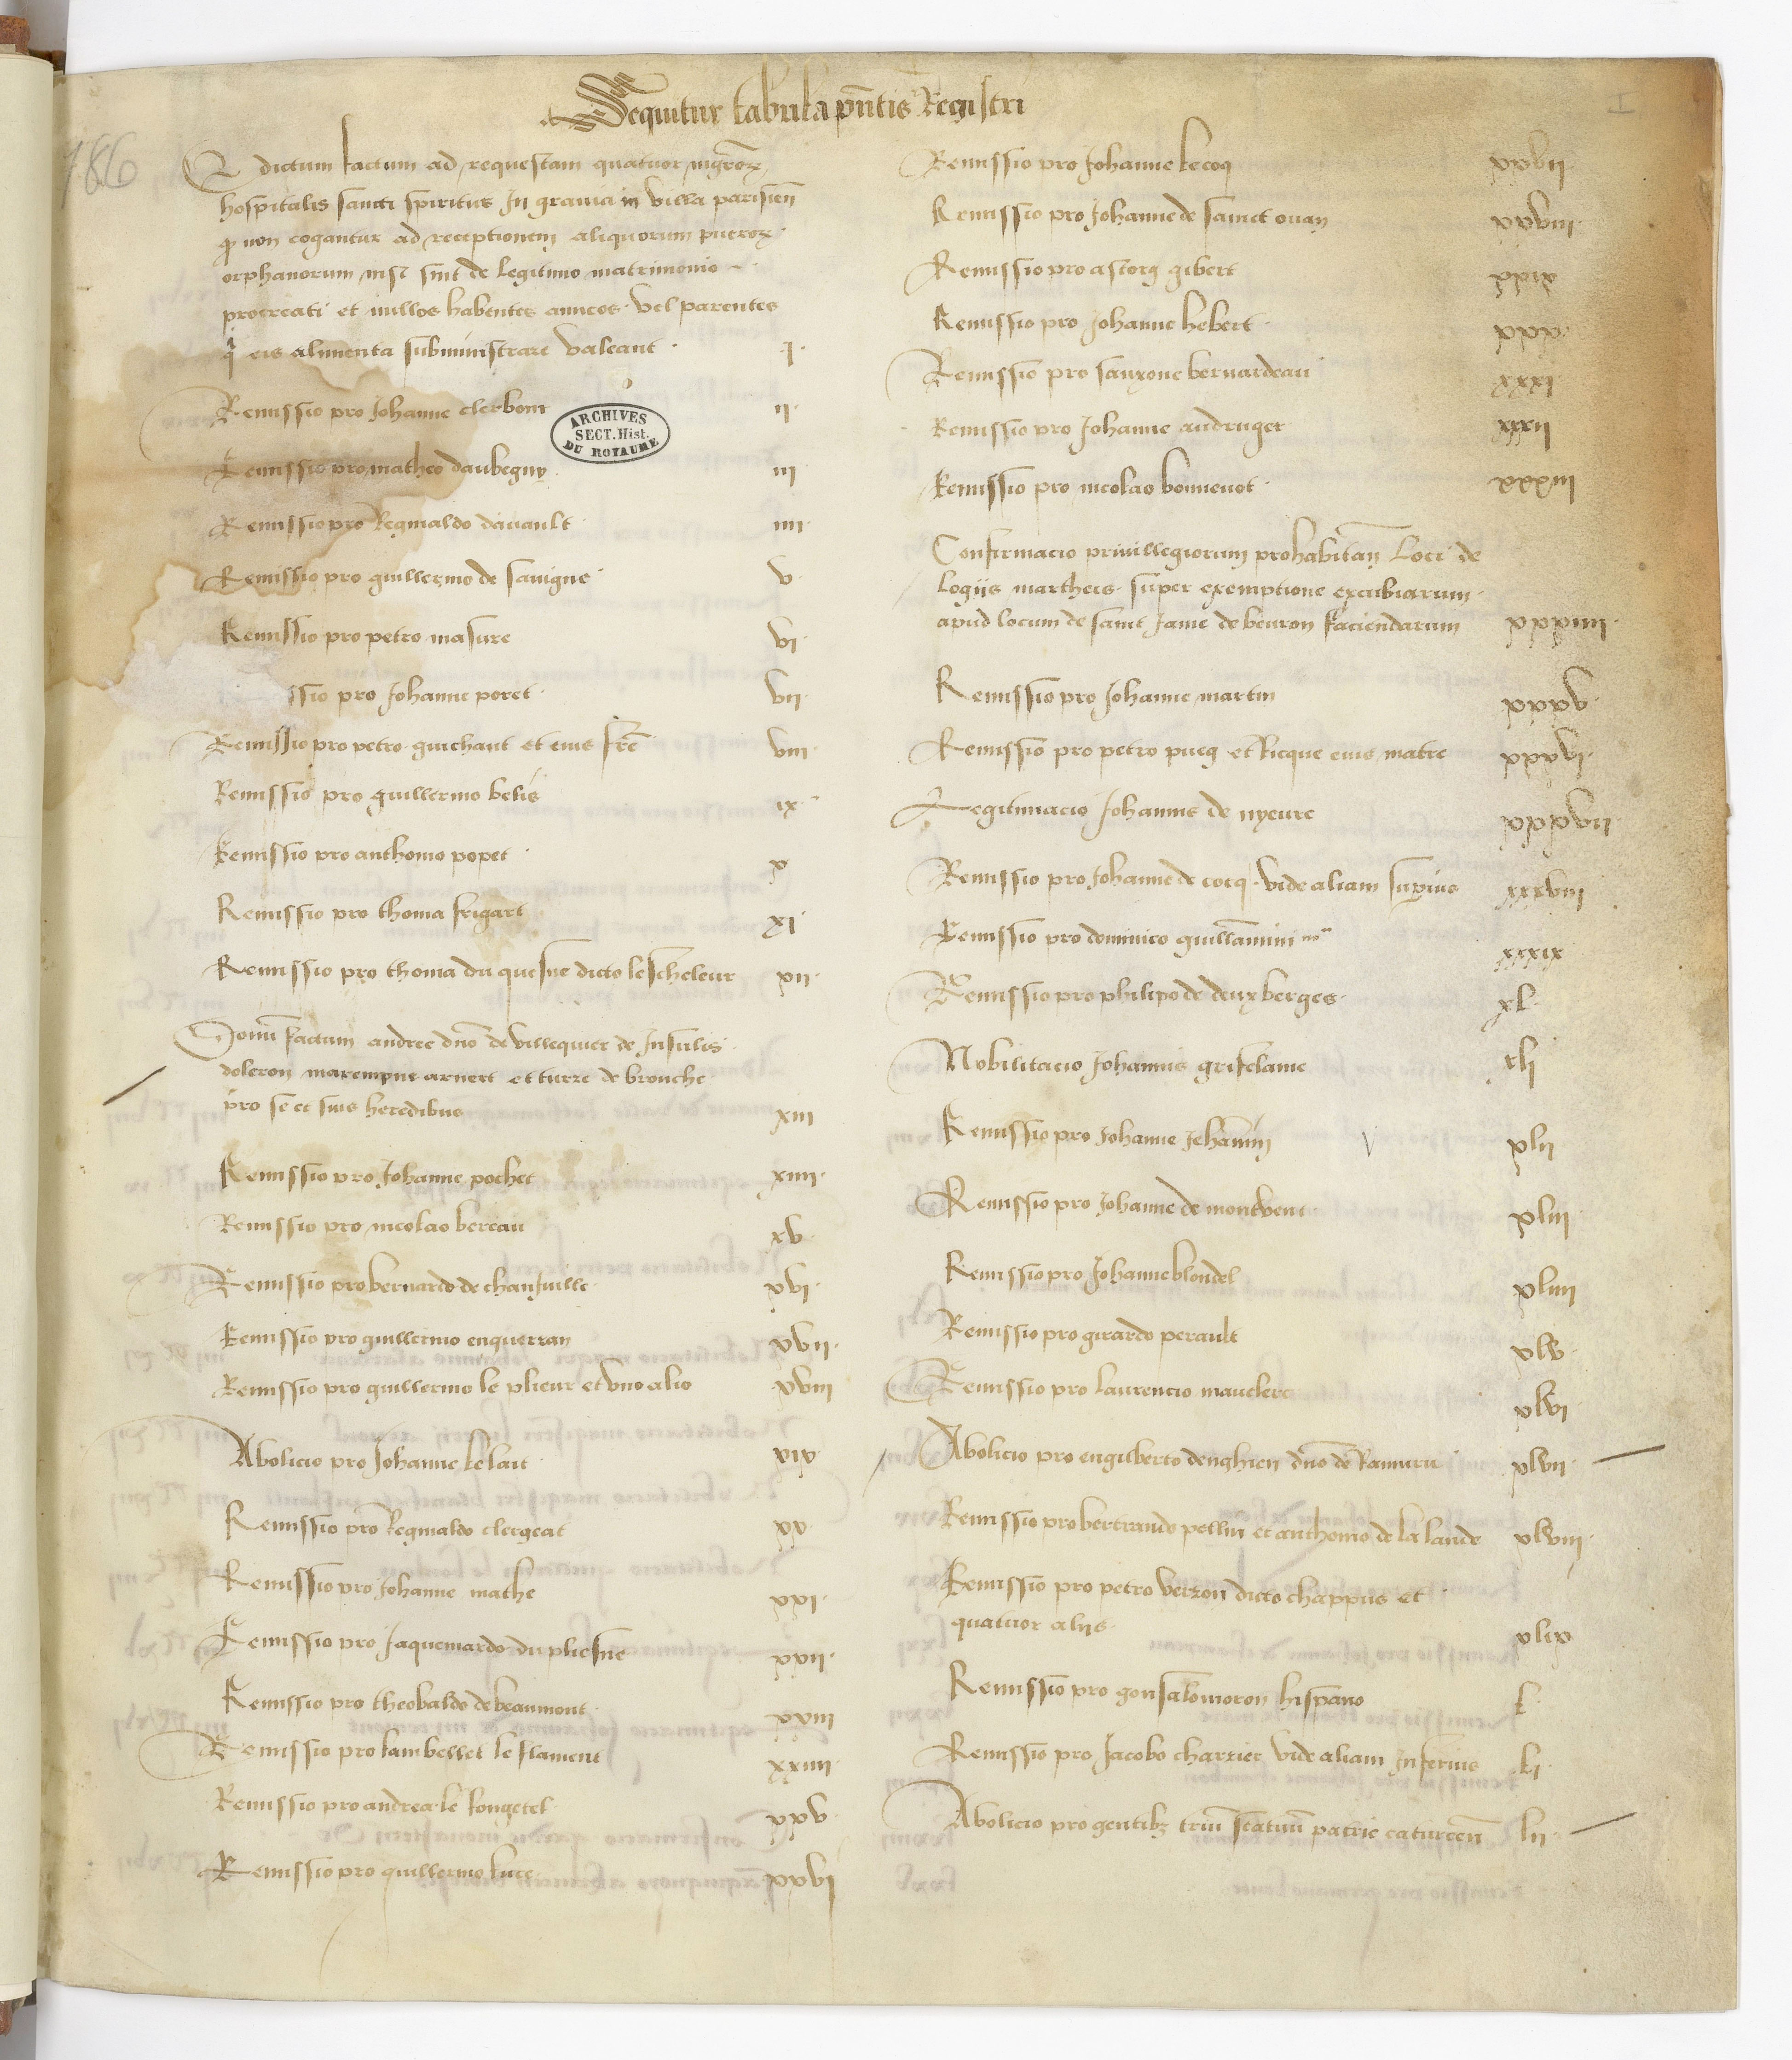 Sequitur tabula pñtis Registri
I
186
Edictum factum ad requestam quatuor mgrõrꝝ
hospitalis sancti spiritus In gravia in villa parisieñ
ꝙ non cogantur ad receptionem aliquorum puerorꝝ
orphanorum nisi sint de legitimo matrimonio
procreati et nullos habentes amicos vel parentes
q̃ eis alimenta subministrare valeant i
Remissio pro Johanne clerbout ii
ARCHIVES
SECT. Hist.
DU ROYAUME
Remissio pro matheo daubegny iii
Remissio pro Reginaldo davault iiii
Remissio pro guillermo de savigne v
Remissio pro petro masure vi
ssio pro Johanne poret vii
Remissio pro petro guichaut et eius frẽ viii
Remissio pro guillermo belis ix
Remissio pro anthonio popet x
Remissio pro thoma frigart xi
Remissio pro thoma du quesne dicto lescheleur xii
Donũ factum andree dño de villequier de Insulis
doleron marempne arvert et turre de brouche
pro se et suis heredibus xiii
Remissio pro Johanne pochet xiiii
Remissio pro nicolao bereau xv
Remissio pro bernardo de chanville xvi
Remissio pro guillermo enguerran xvii
Remissio pro guillermo le plieur et uno alio xviii
Abolicio pro Johanne lelait xix
Remissio pro Reginaldo clergeat xx
Remissio pro Johanne mathe xxi
Remissio pro Jaquemardo du pliesne xxii
Remissio pro theobaldo de beaumont xxiii
Remissio pro lambellet le flament xxiiii
Remissio pro andrea le longetel xxv
Remissio pro guillermo luce xxvi
Remissio pro Johanne lecoq xxvii
Remissio pro Johanne de sainct ouan xxviii
Remissio pro astorg gibert xxix
Remissio pro Johanne hebert xxx
Remissio pro sauxone bernardeau xxxi
Remissio pro Johanne audruger xxxii
Remissio pro nicolao bonnenot xxxiii
Confirmacio privillegiorum pro habitañ loci de
logiis marcheis super exemptione excubiarum
apud locum de saint Jame de beuron faciendarum xxxiiii
Remissio pro Johanne martin xxxv
Remissio pro petro pueg et Ricque eius matre xxxvi
Legitimacio Johannis de nyeure xxxvii
Remissio pro Johanne de cocq vide aliam supius xxxviii
Remissio pro dominico guillãmin xxxix
Remissio pro philipo de deux berges xl
Nobilitacio Johannis griselame xli
Remissio pro Johanne Jehãnin xlii
Remissio pro Johanne de montvent xliii
Remissio pro Johanne blondel xliiii
Remissio pro girardo perault xlv
Remissio pro laurencio mauclerc xlvi
Abolicio pro engilberto denghien dño de Rameru xlvii
Remissio pro bertrando pellin et anthonio de la lande xlviii
Remissio pro petro verzon dicto chappus et
quatuor aliis xlix
Remissio pro gonsalvo moron hispano l
Remissio pro Jacobo charrier vide aliam Inferius li
Abolicio pro gentibꝫ triũ statuũ patrie caturceñ lii